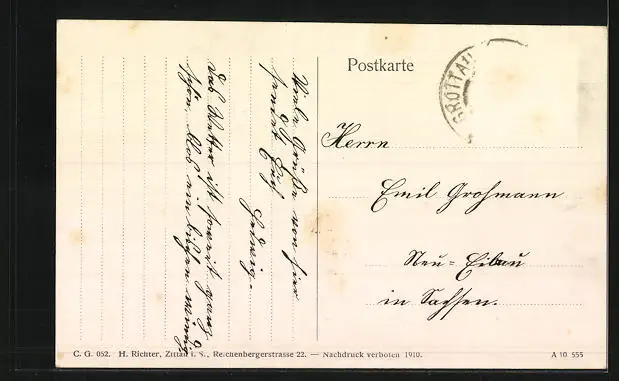 Viele Grüße von hier
sendet Euch
Hedwig.
Das Wetter ist soweit ganz
schön blos ein bißchen windig
Postkarte
GROTTAU
Herrn
Emil Großmann
Neu-Eibau
in Sachsen.
C. G. 052. H. Richter, Zittau i. S., Reichenbergerstrasse 22. — Nachdruck verboten 1910. A 10 555